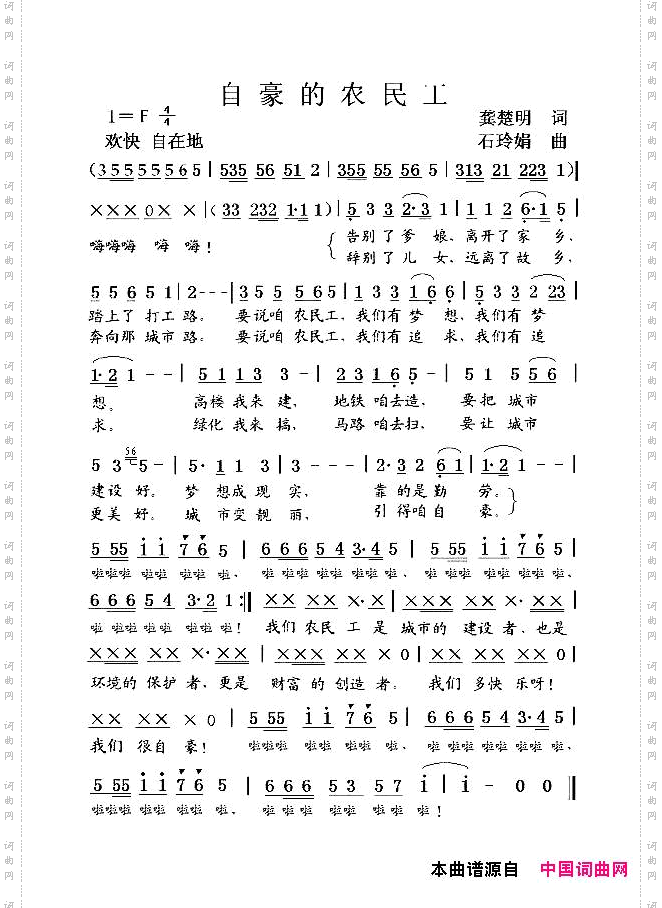 自豪的农民工
1=F 4/4 龚楚明 词
欢快 自在地 石玲娟 曲
(3555556 5 | 535 56 51 2 | 355 55 56 5 | 313 21 223 1)‖
××× 0× × | (33 232 1·1 1) | 5 3 3 2·3 1 | 1 1 2 6·1 5 |
嗨嗨嗨 嗨 嗨! 告别了爹 娘、离开了家 乡,
辞别了儿 女、远离了故 乡,
5 5 6 5 1 | 2 - - - | 3 5 5 5 6 5 | 1 3 3 1 6 | 5 3 3 2 23 |
踏上了 打工 路。 要说咱 农民工,我们有梦 想,我们有梦
奔向那 城市 路。 要说咱 农民工,我们有追 求,我们有追
1·2 1 - - | 5 1 1 3 3 - | 2 3 1 6 5 - | 5 1 5 5 6 |
想。 高楼 我来 建, 地铁 咱去造, 要 把 城市
求。 绿化 我来 搞, 马路 咱去扫, 要 让 城市
5 3 56 5 - | 5· 1 1 3 | 3 - - - | 2· 3 2 6 1 | 1·2 1 - - |
建设 好。 梦 想成 现 实, 靠 的是 勤 劳。
更美 好。 城 市变 靓 丽, 引 得咱 自 豪。
5 55 i i 7 6 5 | 6 66 6 5 4 3·4 5 | 5 55 i i 7 6 5 |
啦 啦啦 啦啦 啦啦 啦, 啦 啦啦 啦啦啦 啦啦 啦, 啦 啦啦 啦啦 啦啦 啦,
6 6 6 5 4 3·2 1 :‖ ×× ×× ×·× | ×× ×× ××·×× |
啦 啦啦啦啦 啦啦 啦! 我们 农民 工 是 城市的 建设 者,也是
×× ×× ××·×× | ×× ×× ×× × | ×× ×× × 0 |
环境的 保护 者,更是 财富 的 创造 者。 我们 多快 乐呀!
×× ×× × 0 | 5 55 i i 7 6 5 | 6 66 6 5 4 3·4 5 |
我们 很自 豪! 啦啦啦 啦啦 啦啦 啦, 啦 啦啦 啦啦啦 啦啦 啦,
5 55 i i 7 6 5 | 6 66 5 3 5 7 | i i - 0 0 ‖
啦啦啦 啦啦 啦啦 啦, 啦 啦啦 啦啦 啦啦 啦!
本曲谱源自 中国词曲网
词曲网